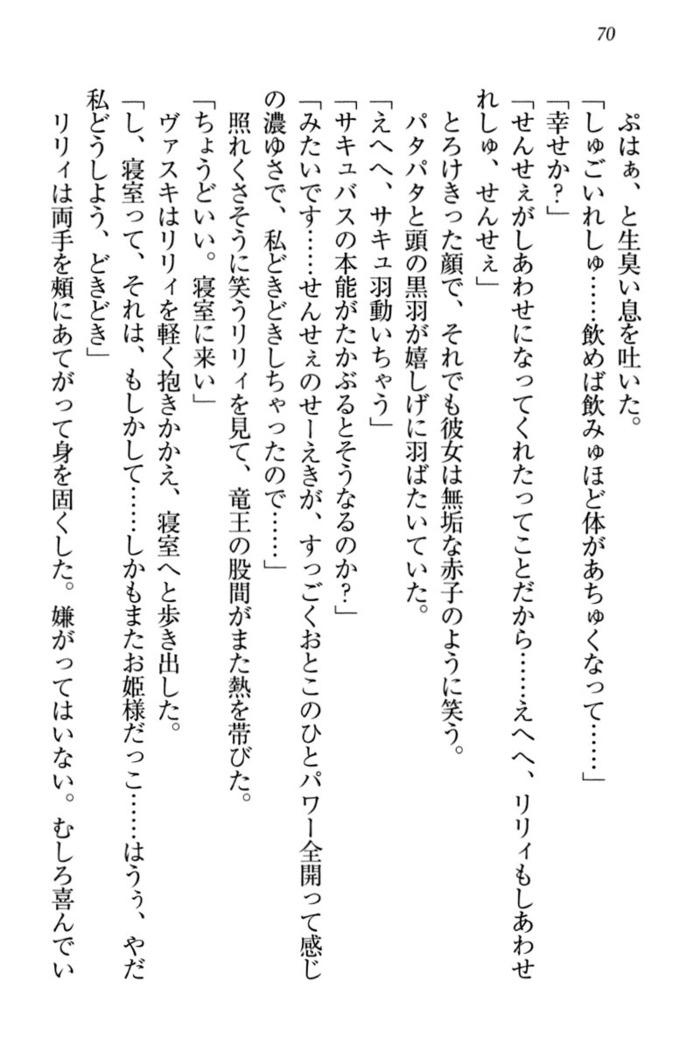 70
ぷはぁ、と生臭い息を吐いた。
「しゅごいれしゅ……飲めば飲みゅほど体があちゅくなって……」
「幸せか?」
「せんせぇがしあわせになってくれたってことだから……えへへ、リリィもしあわせ
れしゅ、せんせぇ」
とろけきった顔で、それでも彼女は無垢な赤子のように笑う。
パタパタと頭の黒羽が嬉しげに羽ばたいていた。
「えへへ、サキュ羽動いちゃう」
「サキュバスの本能がたかぶるとそうなるのか?」
「みたいです……せんせぇのせーえきが、すっごくおとこのひとパワー全開って感じ
の濃ゆさで、私どきどきしちゃったので……」
照れくさそうに笑うリリィを見て、竜王の股間がまた熱を帯びた。
「ちょうどいい。寝室に来い」
ヴァスキはリリィを軽く抱きかかえ、寝室へと歩き出した。
「し、寝室って、それは、もしかして……しかもまたお姫様だっこ……はうぅ、やだ
私どうしよう、どきどき」
リリィは両手を頬にあてがって身を固くした。嫌がってはいない。むしろ喜んでい